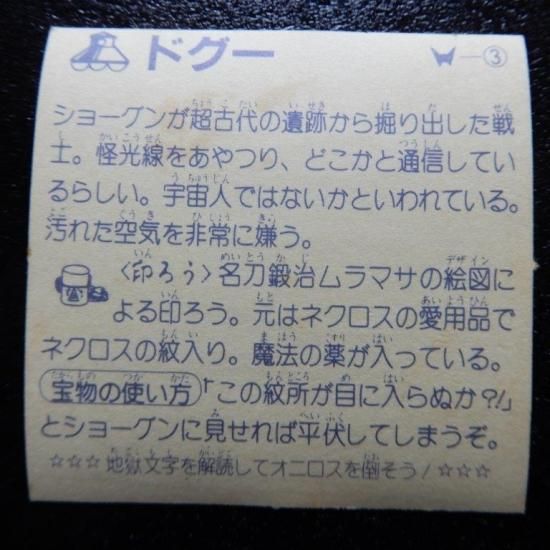 ドグー ー③
ショーグンが超古代の遺跡から掘り出した戦
士。怪光線をあやつり、どこかと通信してい
るらしい。宇宙人ではないかといわれている。
汚れた空気を非常に嫌う。
〈印ろう〉名刀鍛治ムラマサの絵図に
よる印ろう。元はネクロスの愛用品で
ネクロスの紋入り。魔法の薬が入っている。
宝物の使い方「この紋所が目に入らぬか?!」
とショーグンに見せれば平伏してしまうぞ。
☆☆☆地獄文字を解読してオニロスを倒そう!☆☆☆